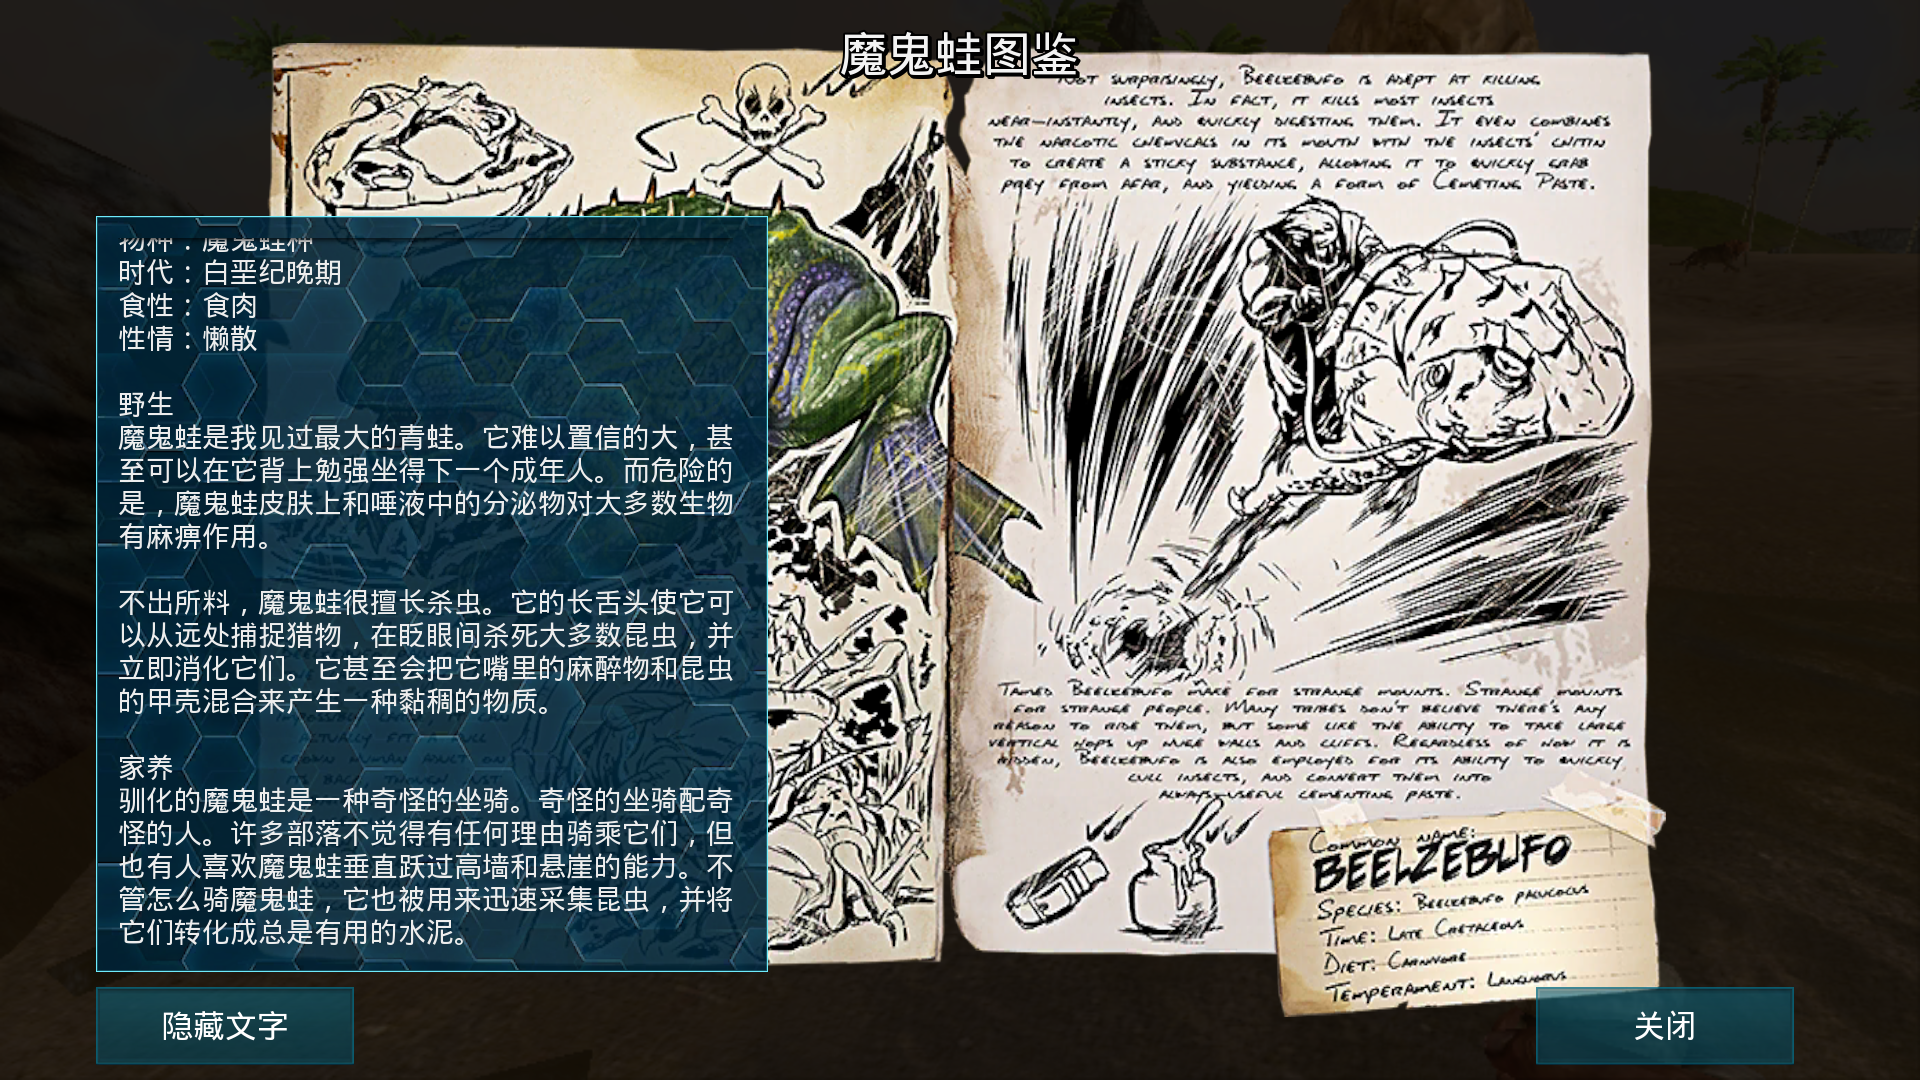 魔鬼蛙图鉴
Not surprisingly, Beelzebufo is adept at killing
insects. In fact, it kills most insects
near-instantly, and quickly digesting them. It even combines
the narcotic chemicals in its mouth with the insects' chitin
to create a sticky substance, allowing it to quickly grab
prey from afar, and yielding a form of Cemeting Paste.
物种：魔鬼蛙种
时代：白垩纪晚期
食性：食肉
性情：懒散
野生
魔鬼蛙是我见过最大的青蛙。它难以置信的大，甚
至可以在它背上勉强坐得下一个成年人。而危险的
是，魔鬼蛙皮肤上和唾液中的分泌物对大多数生物
有麻痹作用。
不出所料，魔鬼蛙很擅长杀虫。它的长舌头使它可
以从远处捕捉猎物，在眨眼间杀死大多数昆虫，并
立即消化它们。它甚至会把它嘴里的麻醉物和昆虫
的甲壳混合来产生一种黏稠的物质。
家养
驯化的魔鬼蛙是一种奇怪的坐骑。奇怪的坐骑配奇
怪的人。许多部落不觉得有任何理由骑乘它们，但
也有人喜欢魔鬼蛙垂直跃过高墙和悬崖的能力。不
管怎么骑魔鬼蛙，它也被用来迅速采集昆虫，并将
它们转化成总是有用的水泥。
Tamed Beelzebufo make for strange mounts. Strange mounts
for strange people. Many tribes don't believe there's any
reason to ride them, but some like the ability to take large
vertical hops up huge walls and cliffs. Regardless of how it is
ridden, Beelzebufo is also employed for its ability to quickly
cull insects, and convert them into
always-useful cementing paste.
Common name:
BEELZEBUFO
Species: Beelzebufo palucocus
Time: Late Cretaceous
Diet: Carnivore
Temperament: Languorus
隐藏文字
关闭